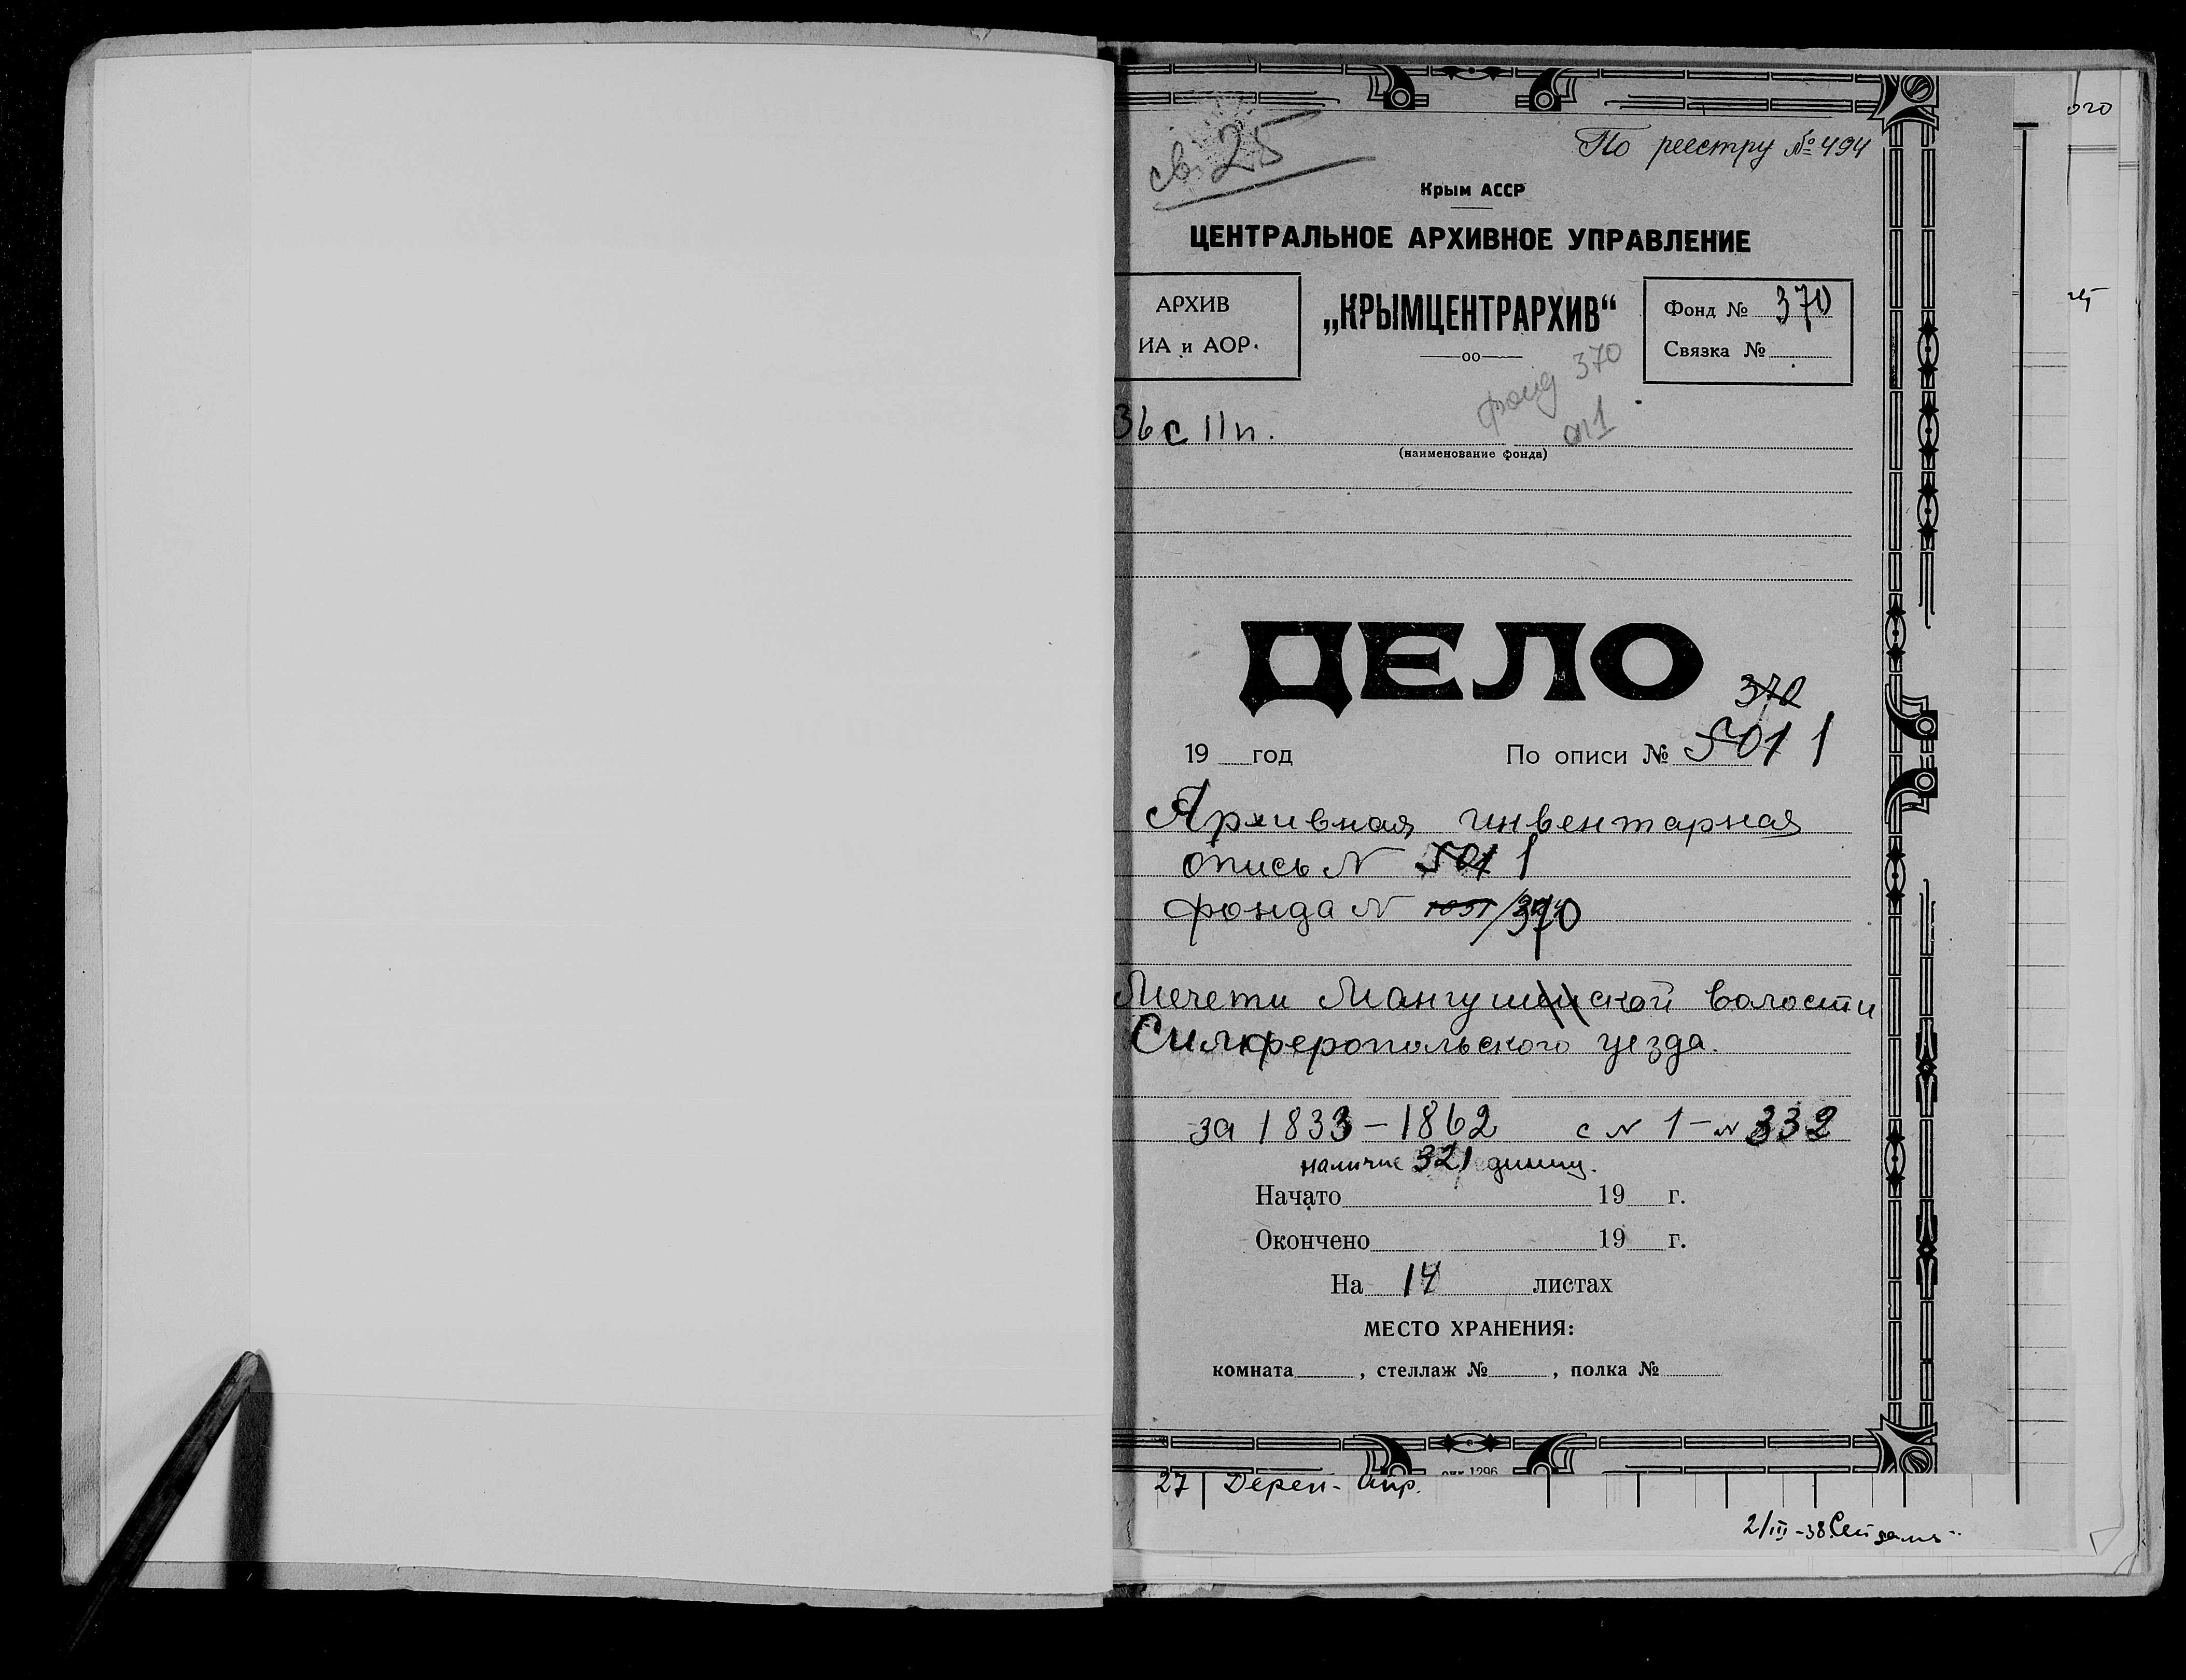 св. 25
По реестру № 494
Крым АССР
ЦЕНТРАЛЬНОЕ АРХИВНОЕ УПРАВЛЕНИЕ
АРХИВ
ИА и АОР.
„КРЫМЦЕНТРАРХИВ“
Фонд № 370
Связка №
фонд 370
оп 1
36 с 11 п.
(наименование фонда)
ДЕЛО
370
19 год По описи № 501 1
Архивная инвентарная
опись N 501 1
фонда N 370
Мечети Мангушской волости
Симферопольского уезда.
за 1833-1862 с N 1-N 332
наличие 321 единиц.
Начато 19 г.
Окончено 19 г.
На 14 листах
МЕСТО ХРАНЕНИЯ:
комната , стеллаж № , полка №
1296
27 Дерек-
2/III-38